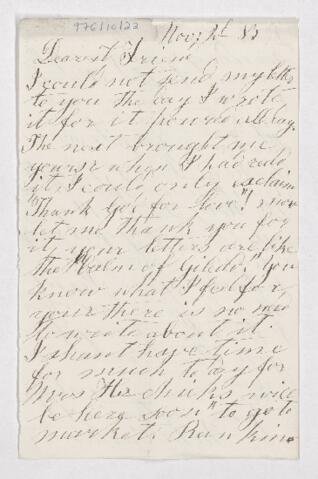 976/10/22
Nov, 2d 83
Dearest Friend
I could not send my letter
to you the day I wrote
it for it poured all day.
The next brought me
yours & when I had read
it, I could only exclaim
"Thank God for love"! now
let me thank you for
it, your letters are like
the "balm of Gilead." You
know what I feel for
you & there is no need
to write about it.
I shan't have time
for much to day for
Mrs H's chicks will
be here soon to go to
market. Rankin